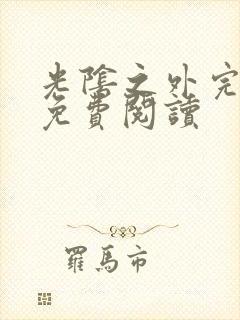 光陰之外完
免費閱讀
羅馬市